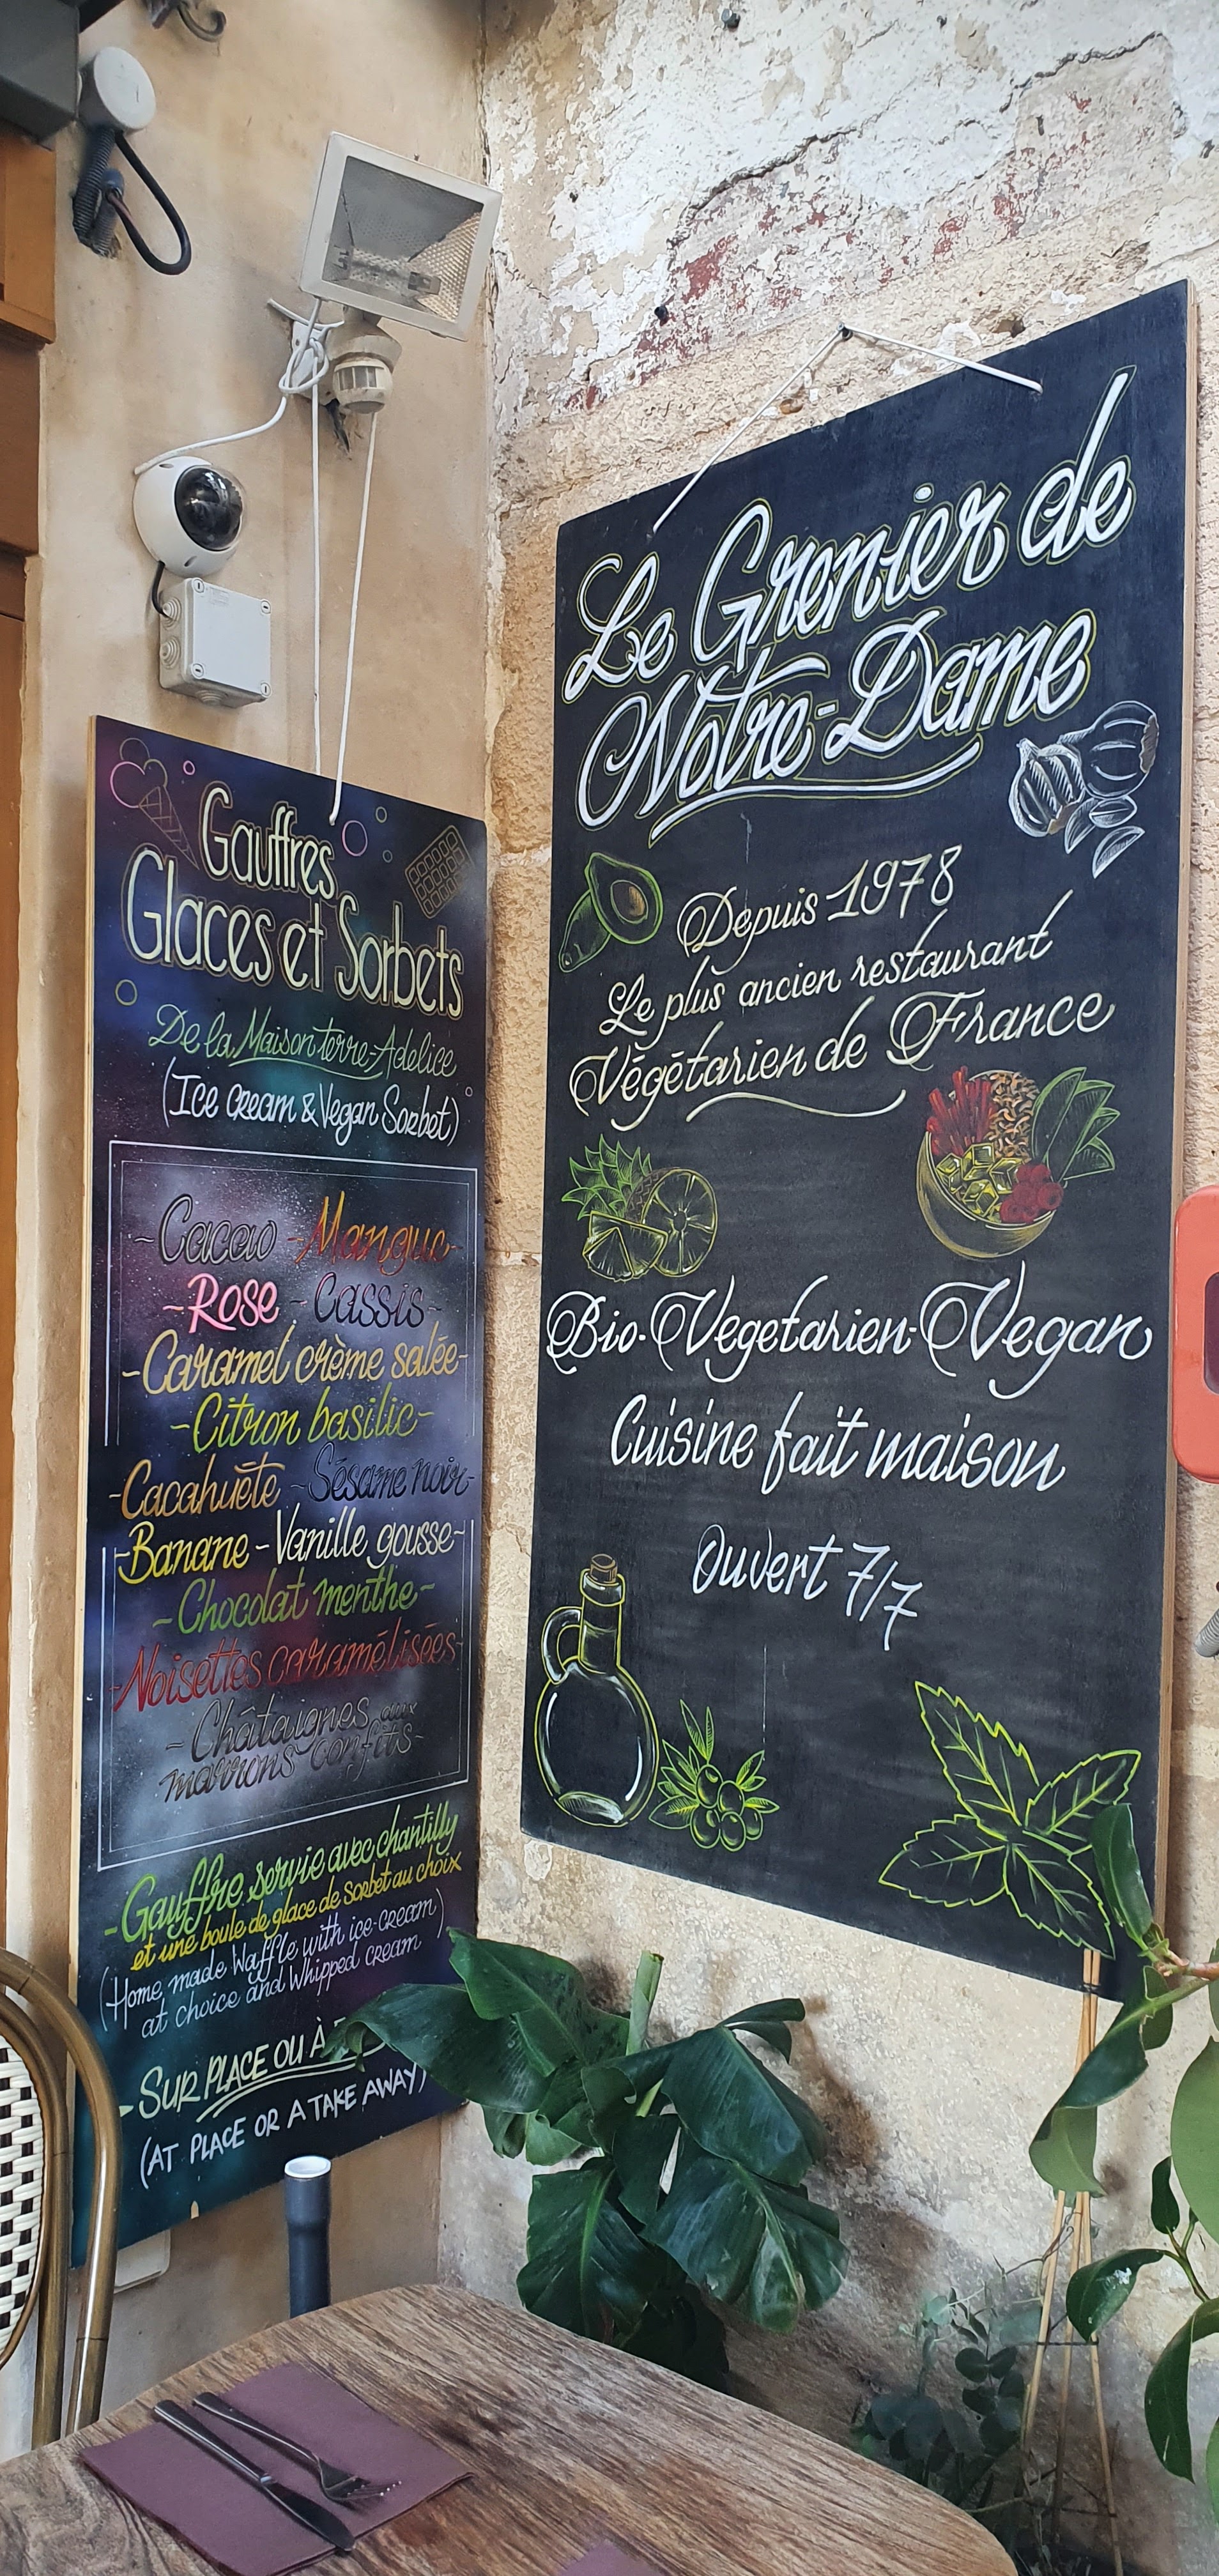 Gauffres
Glaces et Sorbets
De la Maison terre-Adelice
(Ice cream & Vegan Sorbet)
~Cacao-Mangue~
~Rose-Cassis~
~Caramel crème salée~
~Citron basilic~
~Cacahuète-Sésame noir~
~Banane-Vanille gousse~
~Chocolat menthe~
~Noisettes caramélisées~
~Châtaignes aux
marrons confits~
-Gauffre servie avec chantilly
et une boule de glace de sorbet au choix
(Home made Waffle with ice-cream)
at choice and Whipped cream
SUR PLACE OU À
(AT PLACE OR A TAKE AWAY)
Le Grenier de
Notre-Dame
Depuis 1978
Le plus ancien restaurant
Végétarien de France
Bio-Vegetarien-Vegan
Cuisine fait maison
Ouvert 7/7